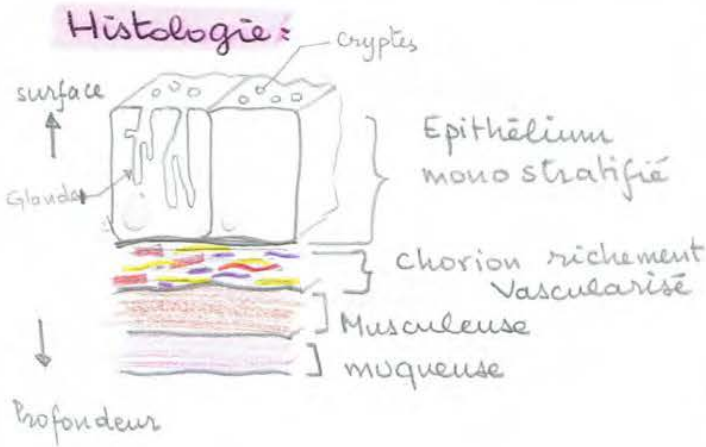 Histologie :
cryptes
surface
Glandes
Epithélium
mono stratifié
chorion richement
Vascularisé
Musculeuse
muqueuse
Profondeur